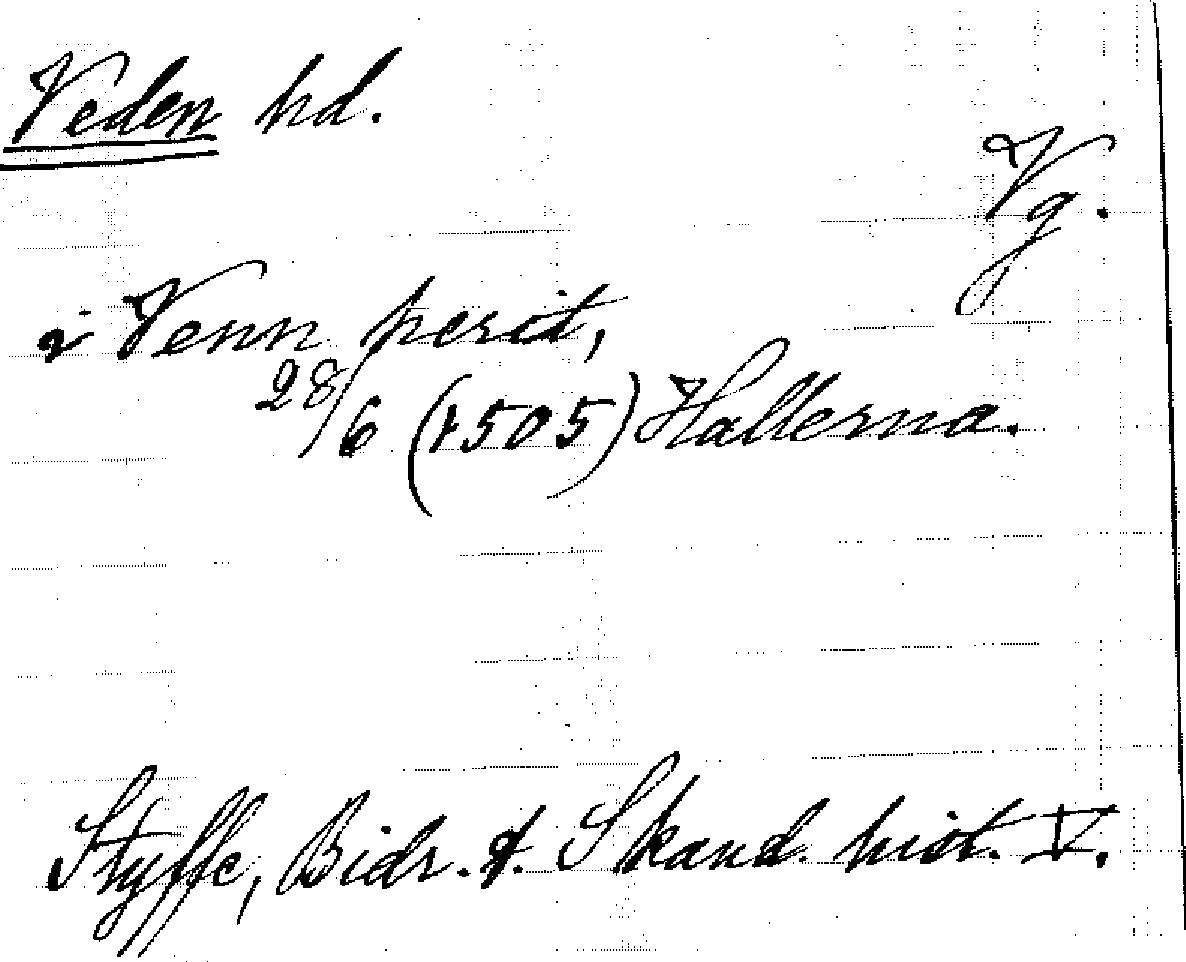 Veden hd.
Vg.
i Venn herit,
28/6 (1505) Hallerna.
Styffe, Bidr. t. Skand. hist. V.